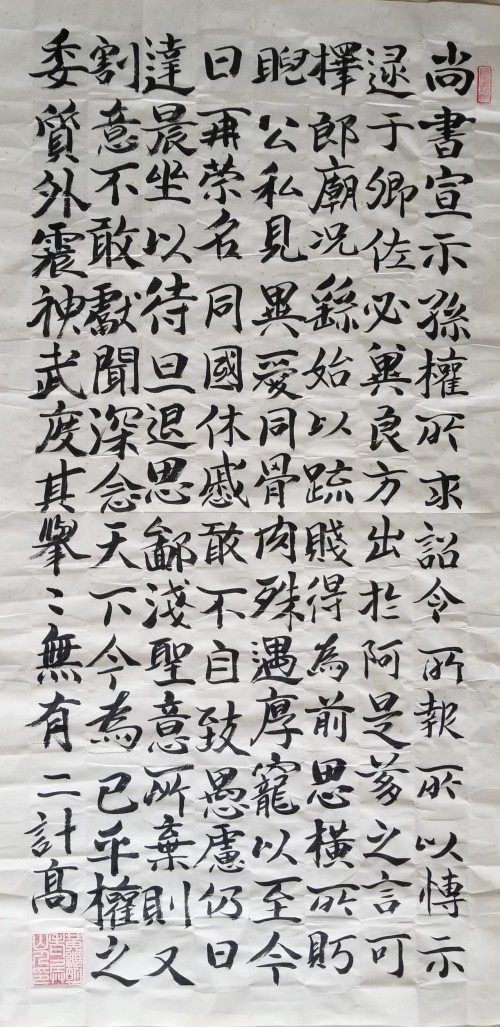 尚書宣示孫權所求詔令所報所以愽示
逮于卿佐必冀良方出於阿是芻之言可
擇郎廟況繇始以疏賤得為前思橫所眄
睨公私見異愛同骨肉殊遇厚寵以至今
日再榮名同國休慼敢不自致愚慮仍日
達晨坐以待旦退思鄙淺聖意所棄則又
割意不敢獻聞深念天下今為已平權之
委質外震神武度其拳〻無有二計高